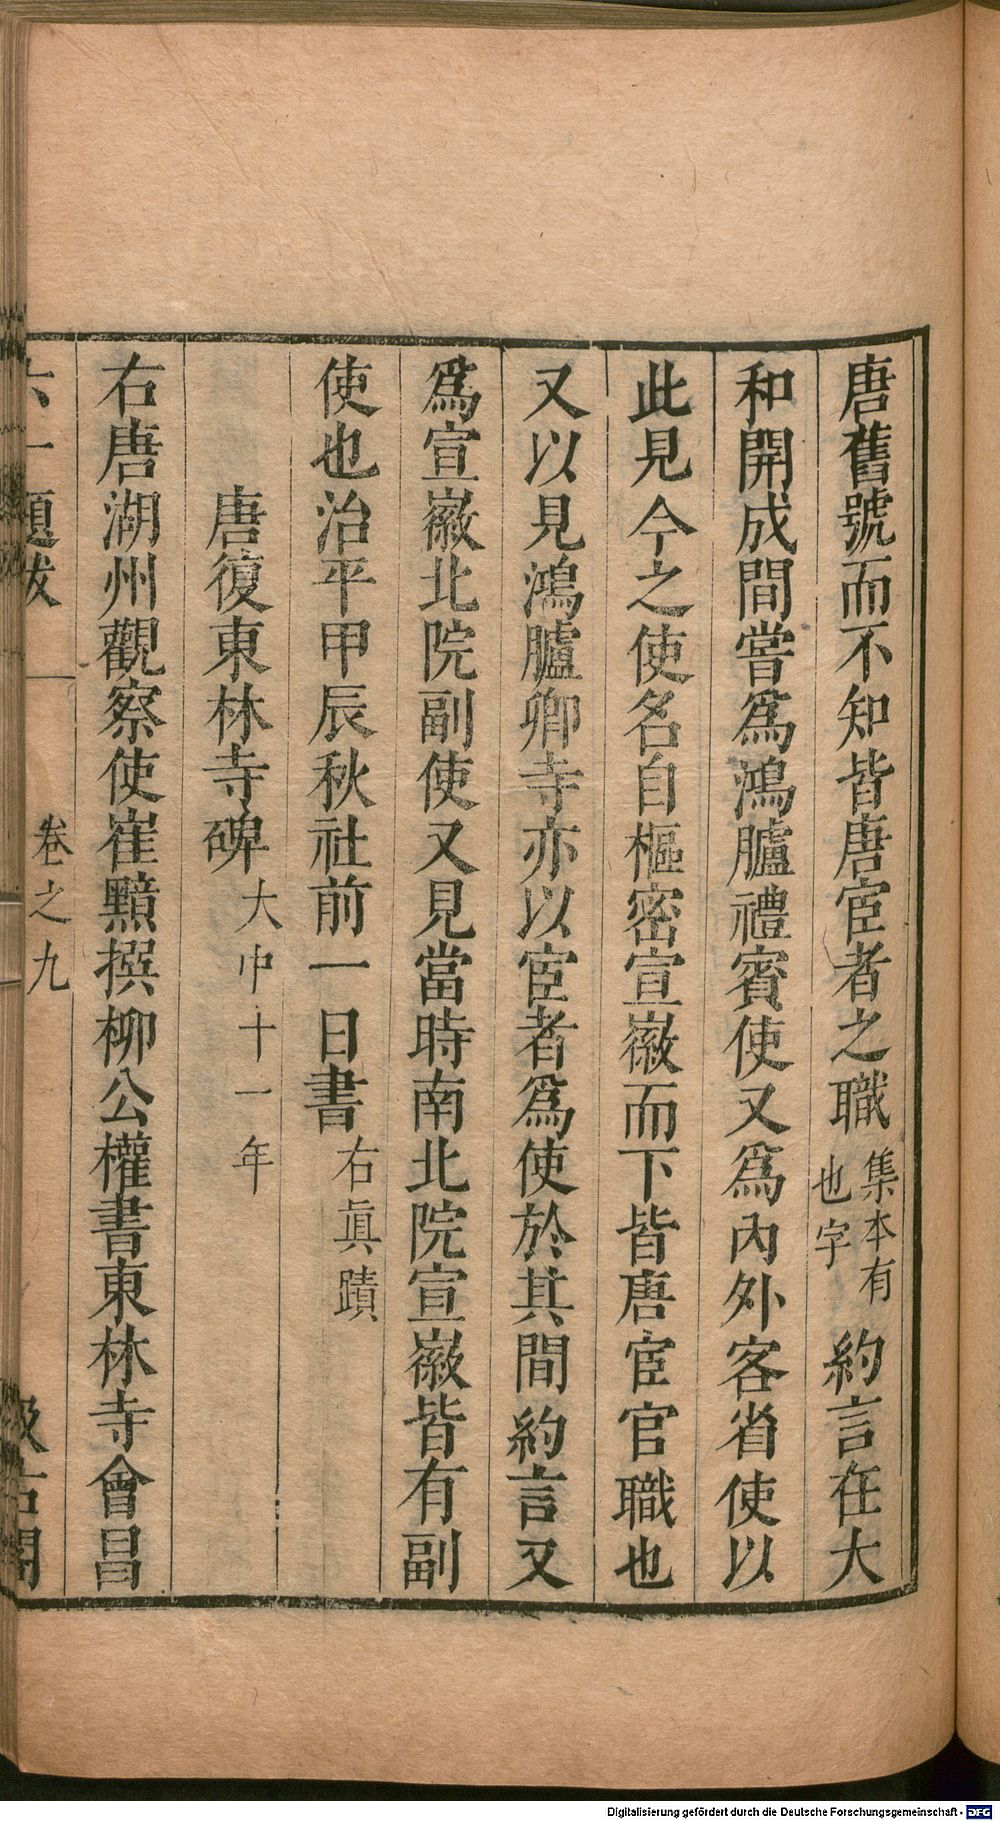 唐舊號而不知皆唐宦者之職集本有也字約言在大
和開成間嘗爲鴻臚禮賓使又爲內外客省使以
此見今之使名自樞密宣徽而下皆唐宦官職也
又以見鴻臚卿寺亦以宦者爲使於其間約言又
爲宣徽北院副使又見當時南北院宣徽皆有副
使也治平甲辰秋社前一日書右眞蹟
唐復東林寺碑大中十一年
右唐湖州觀察使崔黯撰柳公權書東林寺會昌
六一題跋 卷之九 汲古閣
Digitalisierung gefördert durch die Deutsche Forschungsgemeinschaft - DFG